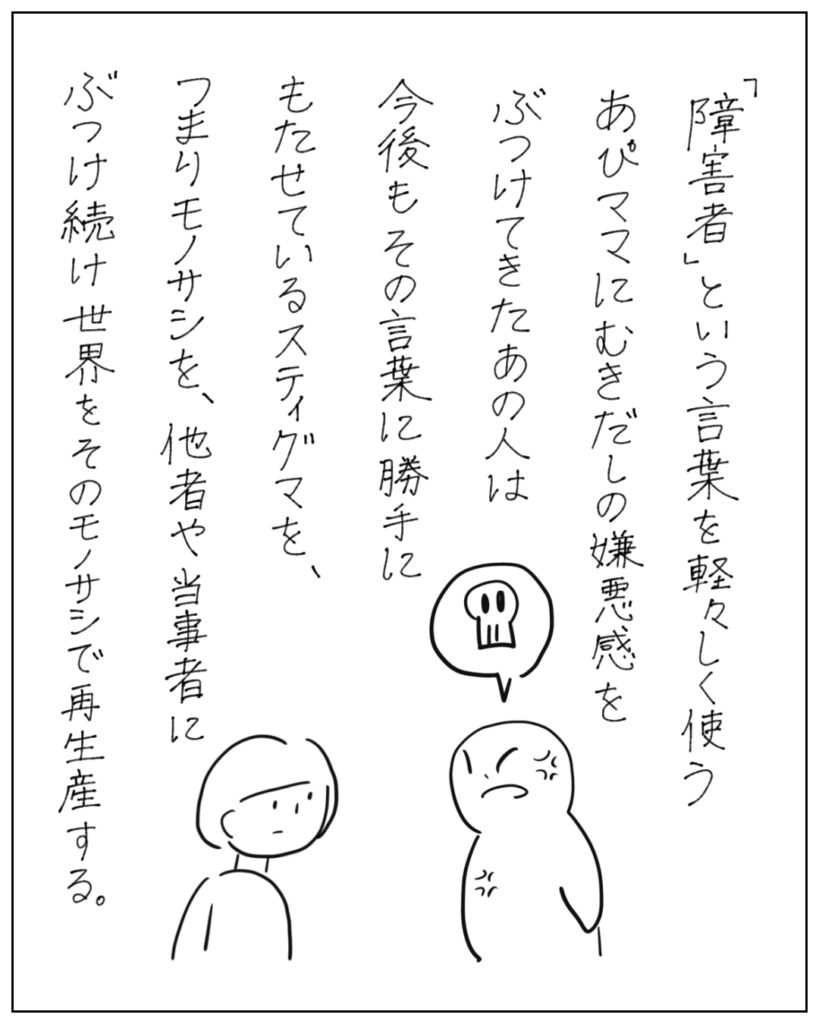 「障害者」という言葉を軽々しく使う
あぴママにむきだしの嫌悪感を
ぶつけてきたあの人は
今後もその言葉に勝手に
もたせているスティグマを、
つまりモノサシを、他者や当事者に
ぶつけ続け世界をそのモノサシで再生産する。